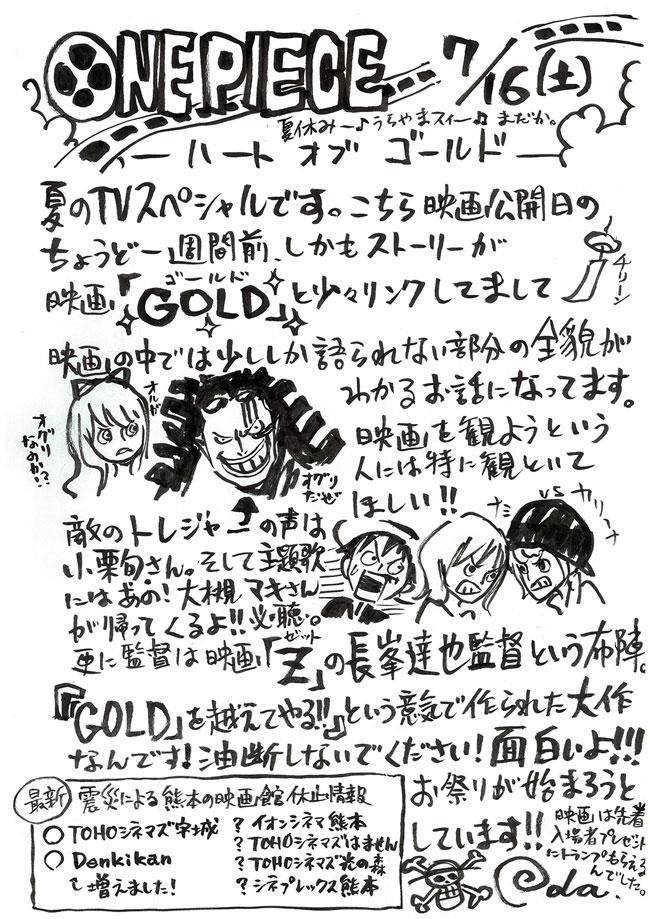 ONE PIECE 7/16(土)
夏休み〜♪うちやまスィー♫まだか。
ー ハート オブ ゴールド ー
夏のTVスペシャルです。こちら映画公開日の
ちょうど一週間前、しかもストーリーが
ゴールド
映画「GOLD」と少々リンクしてまして
チリーン
映画の中では少ししか語られない部分の全貌が
わかるお話になってます。
オルガ
オグリなのか!?
オグリだぜ
映画を観ようという
人には特に観といて
ほしい!!
ナミ vs カリーナ
敵のトレジャーの声は
小栗旬さん。そして主題歌
にはあの!大槻マキさん
が帰ってくるよ!!必聴。
ゼット
更に監督は映画「Z」の長峯達也監督という布陣。
『「GOLD」を越えてやる!!』という意気で作られた大作
なんです!油断しないでください!面白いよ!!!
お祭りが始まろうと
しています!!
映画は先着
入場者プレゼント
にトランプもらえる
んでした。
Oda.
最新 震災による熊本の映画館休止情報
○TOHOシネマズ宇城
○Denkikan
増えました!
?イオンシネマ熊本
?TOHOシネマズはません
?TOHOシネマズ光の森
?シネプレックス熊本